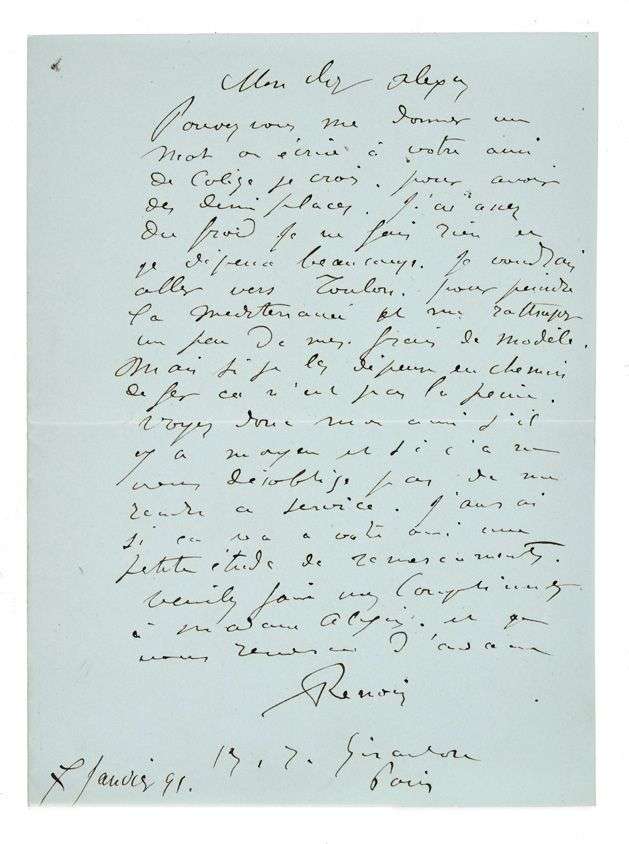 Mon cher Alexis
Pouvez vous me donner un
mot ou écrire à votre ami
de Colige je crois. pour avoir
des demi places. J'ai assez
du froid Je ne fais rien et
je dépense beaucoup. Je voudrais
aller vers Toulon. pour peindre
La mediterranée et me rattraper
un peu De mes frais de modèle.
Mais si je les dépense en chemin
de fer ca n'est pas la peine.
Voyez donc mon ami s'il
y a moyen et si cela ne
vous désoblige pas de me
rendre ce service. J'aurai
si ca va a votre ami une
petite étude de remerciements.
Veuillez faire mes Compliments
à madame Alexis. et je
vous remercie D'avance
Renoir
13. r. Girardon
Paris
Janvier 91.